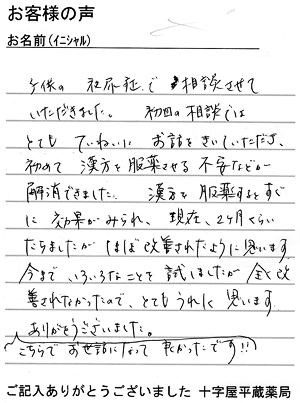 お客様の声
お名前(イニシャル)
子供の夜尿症で相談させて
いただきました。初回の相談では
とてもていねいにお話をきいていただき、
初めて漢方を服薬させる不安などが
解消できました。漢方を服薬するとすぐ
に効果がみられ、現在、2ヶ月くらい
たちましたがほぼ改善されたように思います。
今までいろいろなことを試しましたが全く改
善されなかったので、とてもうれしく思います。
ありがとうございました。
こちらでお世話になって良かったです!!
ご記入ありがとうございました 十字屋平蔵薬局